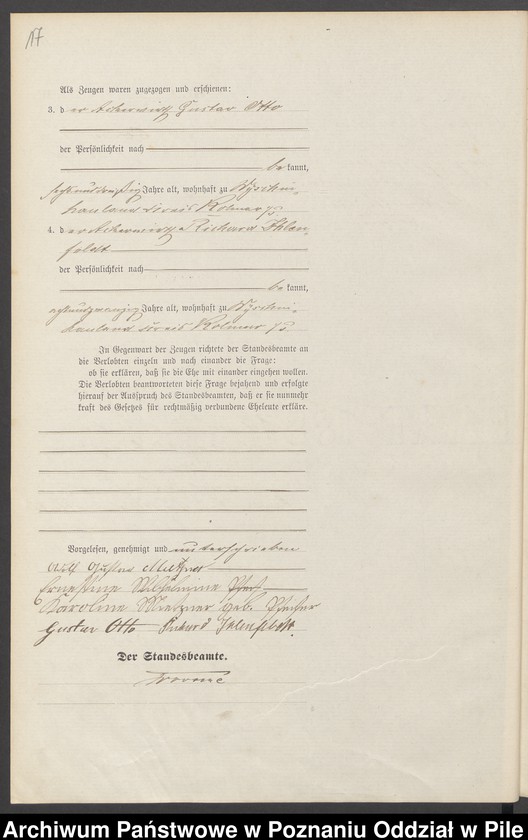 17
Als Zeugen waren zugezogen und erschienen:
3. der Ackerwirth Gustav Otto
der Persönlichkeit nach
bekannt,
Jahre alt, wohnhaft zu
hauland Kreis Kolmar
4. der Ackerwirth Richard Ihlen-
feldt
der Persönlichkeit nach
bekannt,
achtundzwanzig Jahre alt, wohnhaft zu
hauland Kreis Kolmar
In Gegenwart der Zeugen richtete der Standesbeamte an
die Verlobten einzeln und nach einander die Frage:
ob sie erklären, daß sie die Ehe mit einander eingehen wollen.
Die Verlobten beantworteten diese Frage bejahend und erfolgte
hierauf der Ausspruch des Standesbeamten, daß er sie nunmehr
kraft des Gesetzes für rechtmäßig verbundene Eheleute erkläre.
Vorgelesen, genehmigt und unterschrieben
Gustav
Ernestine Wilhelmine
Karoline Metzner geb.
Gustav Otto Richard Ihlenfeldt.
Der Standesbeamte.
Archiwum Państwowe w Poznaniu Oddział w Pile